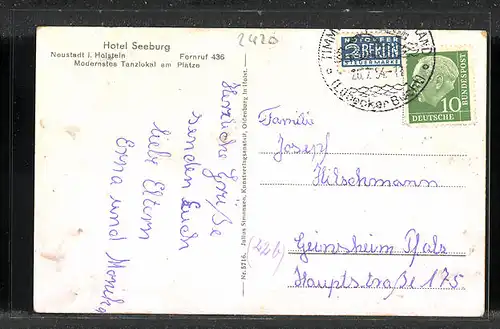 Hotel Seeburg
Neustadt i. Holstein Fernruf 436
Modernstes Tanzlokal am Platze
2420
Herzliche Grüße
senden Euch
liebe Eltern
Erna und Monika
Nr. 5716. Julius Simonsen, Kunstverlagsanstalt, Oldenburg in Holst.
NOTOPFER
2 BERLIN
STEUERMARKE
TIMM
RAND
26.7.54-11
Lübecker Bucht
10
DEUTSCHE
BUNDESPOST
Familie
Josepf
Hilschmann
(22b)
Geinsheim Pfalz
Hauptstraße 175